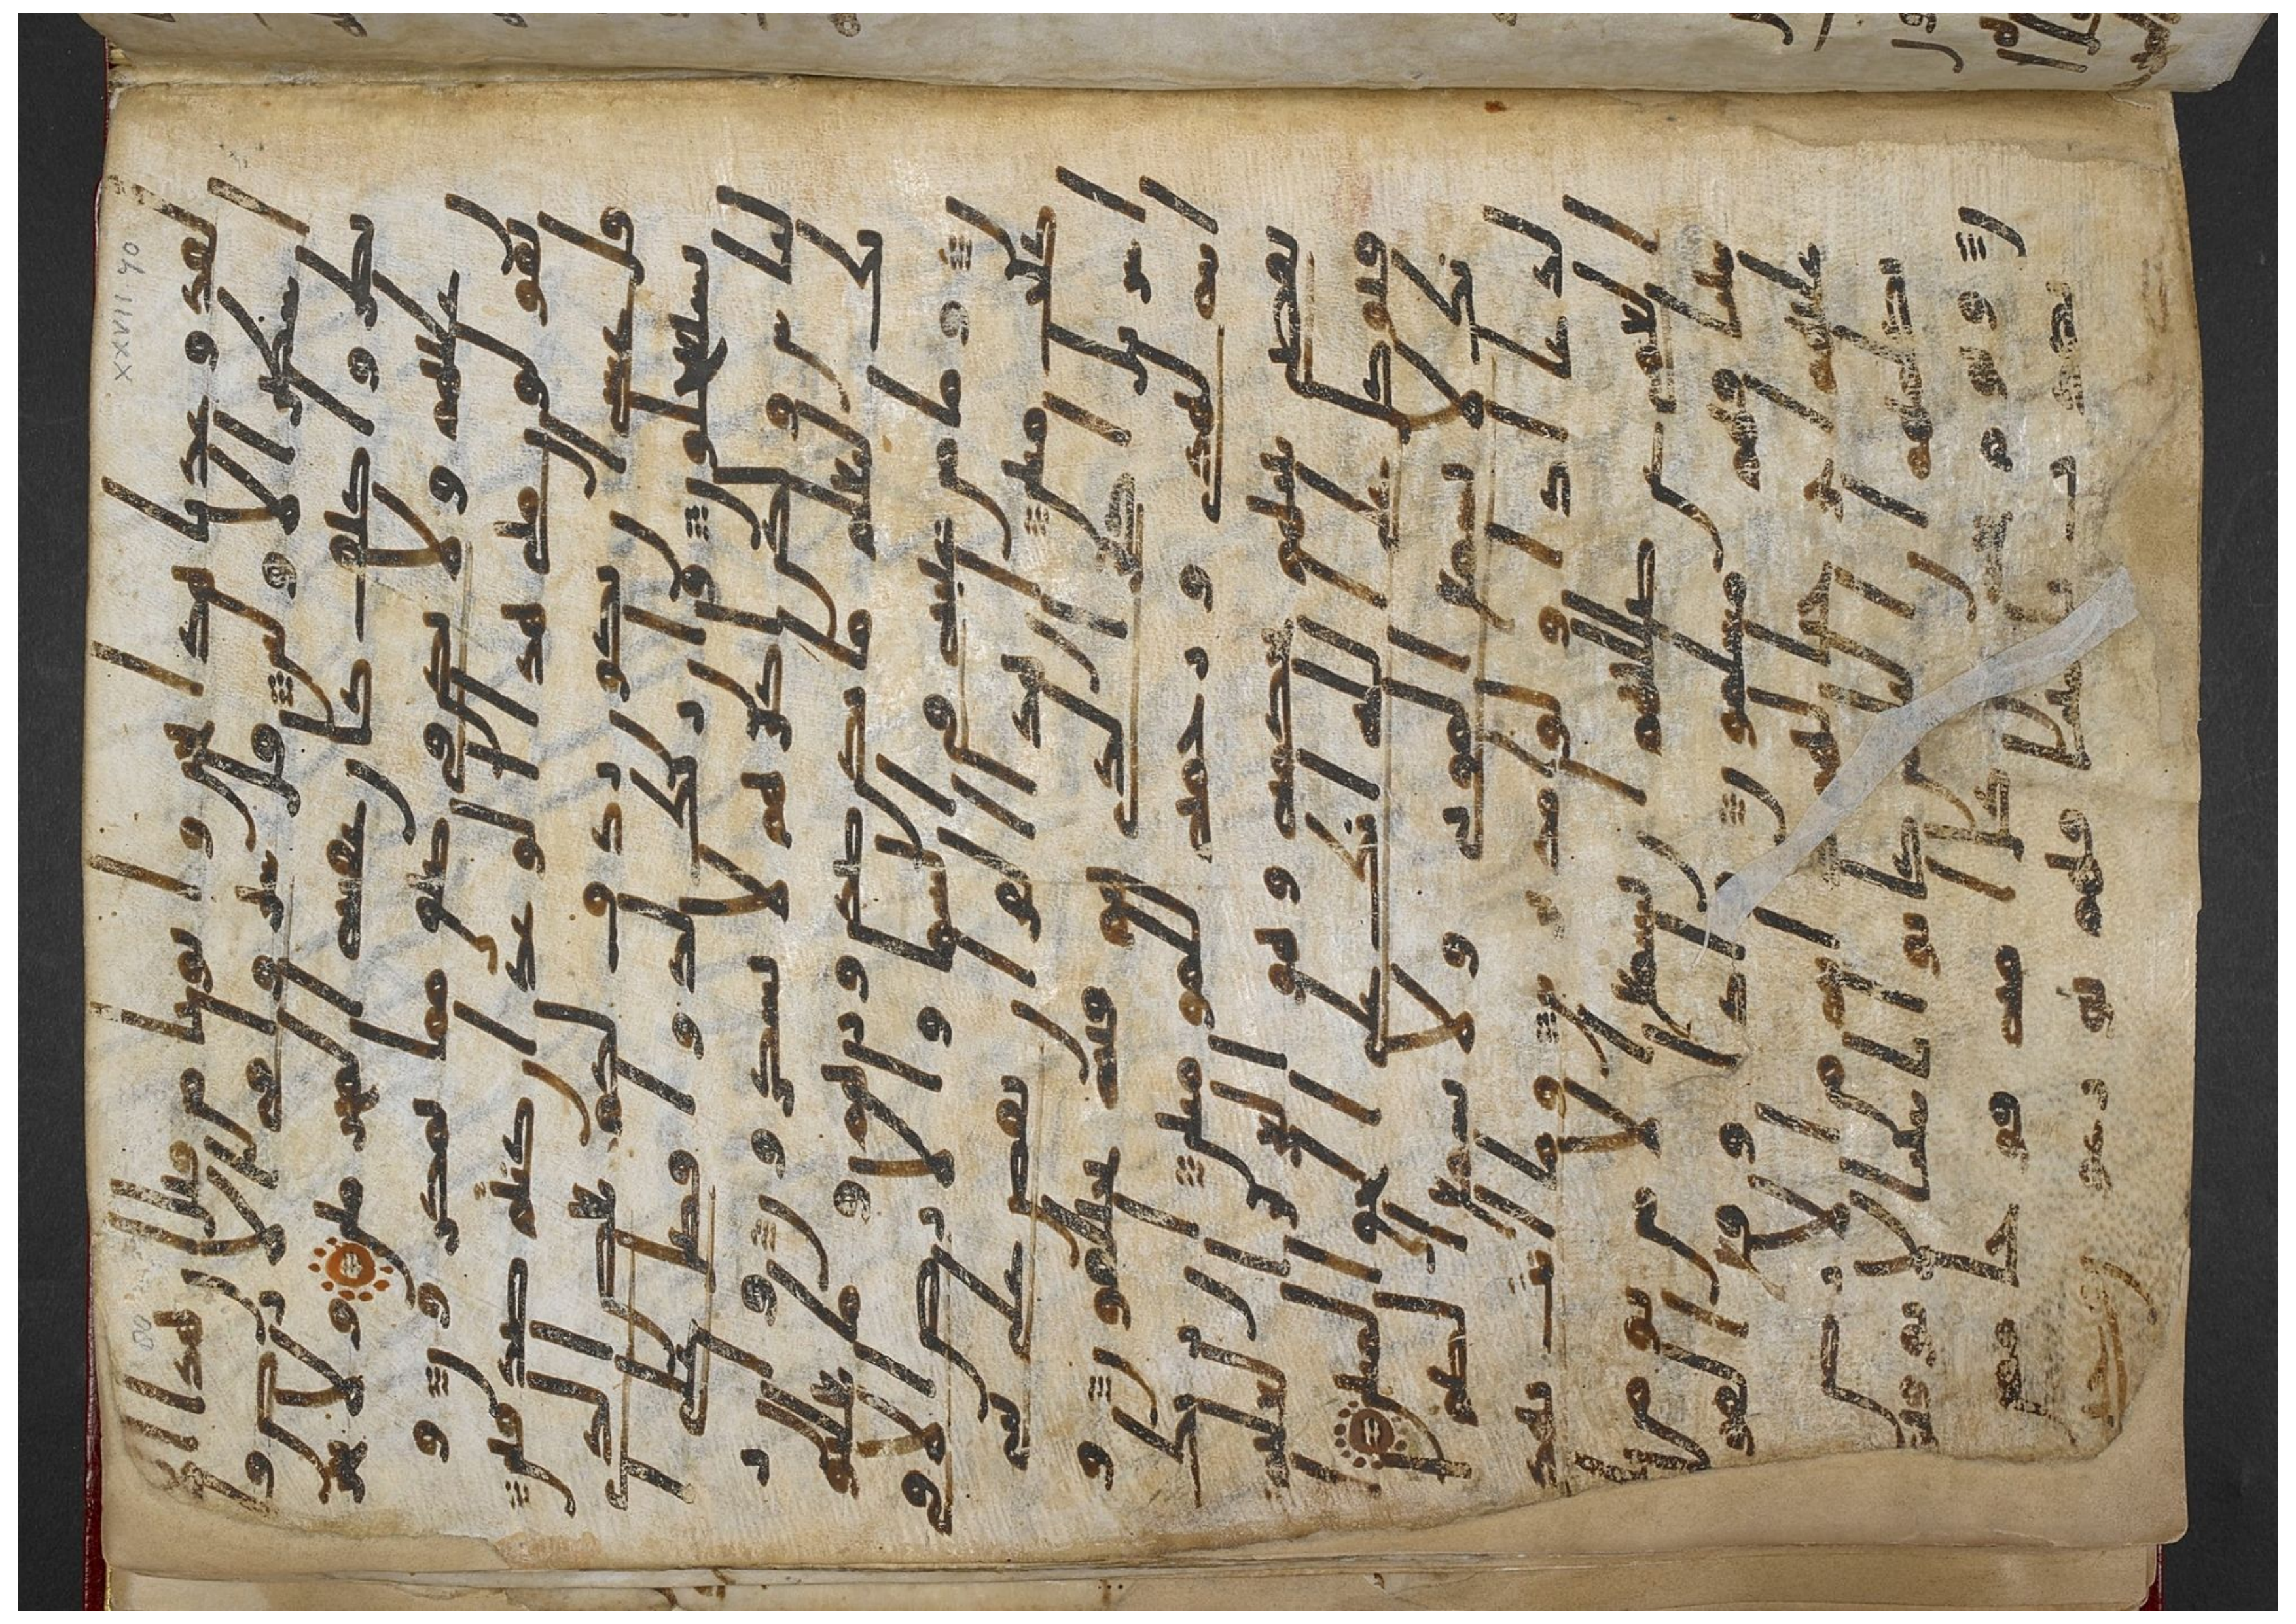 لقد وعدنا هذا نحن واباونا من قبل ان هذا الا
اسطير الاولين قل سيروا في الارض فا
نظروا كيف كان عقبة المجرمين ولا تحز
ن عليهم ولا تكن في ضيق مما يمكرون و
يقولون متى هذا الوعد ان كنتم
صدقين قل عسى ان يكون ردف لكم بعض الذي
تستعجلون وان ربك لذو فضل على
الناس ولكن اكثرهم لا يشكرون و
ان ربك ليعلم ما تكن صدورهم وما يعلنو
ن وما من غيبة في السما والارض الا في
كتب مبين ان هذا القران يقص على
بني اسريل اكثر الذي هم فيه يختلفون و
انه لهدى ورحمة للمومنين ان ربك
يقضي بينهم بحكمه وهو العزيز العليم
فتوكل على الله انك على الحق المبين
انك لا تسمع الموتى ولا تسمع الصم
الدعا اذا ولوا مدبرين وما انت بهدى
العمي عن ضللتهم ان تسمع الا من يومن
بايتنا فهم مسلمون واذا وقع القول
عليهم اخرجنا لهم دابة من الارض
تكلمهم ان الناس كانوا بايتنا لا يوقنو
ن ويوم نحشر من كل امة فوجا ممن
يكذب بايتنا فهم يوزعون